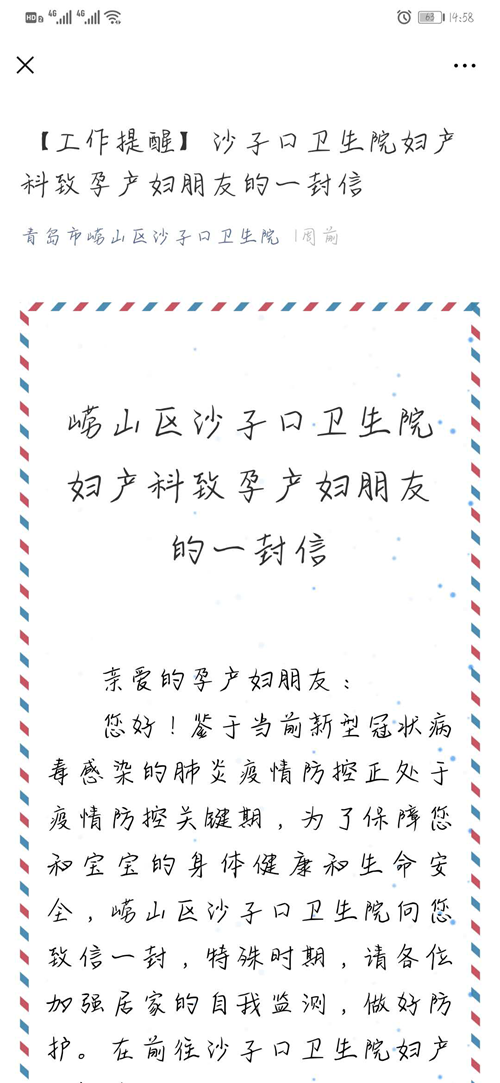 HD2 4G 4G 63 14:58
【工作提醒】沙子口卫生院妇产
科致孕产妇朋友的一封信
青岛市崂山区沙子口卫生院 1周前
崂山区沙子口卫生院
妇产科致孕产妇朋友
的一封信
亲爱的孕产妇朋友：
您好！鉴于当前新型冠状病
毒感染的肺炎疫情防控正处于
疫情防控关键期，为了保障您
和宝宝的身体健康和生命安
全，崂山区沙子口卫生院向您
致信一封，特殊时期，请各位
加强居家的自我监测，做好防
护。在前往沙子口卫生院妇产